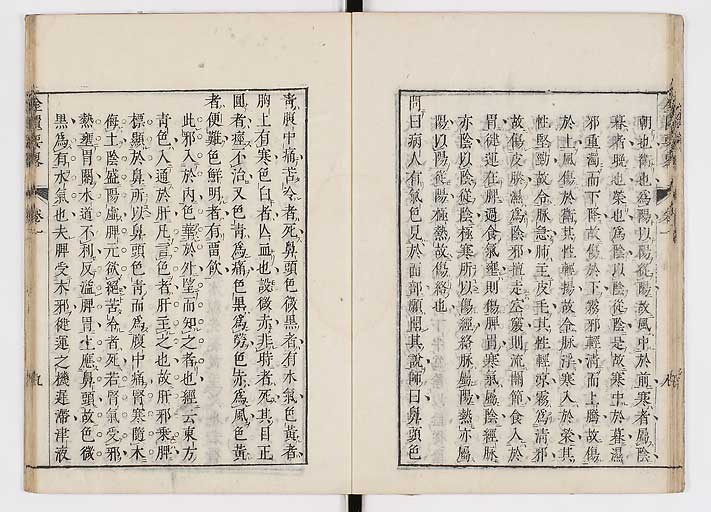 朝也衛也爲陽以陽從陽故風中於前寒者屬陰
暮者晚也榮也爲陰以陰從陰是故寒中於暮濕
邪重濁而下降故傷於下霧邪輕清而上騰故傷
於上風傷於衛其性輕揚故令脉浮寒入於榮其
性堅勁故令脉急肺主皮毛其性輕凉霧爲清邪
故傷皮腠濕爲陰邪擅走空竅則流關節食入於
胃從運在脾過食氣壅則傷脾胃寒氣屬陰經脉
亦陰以陰從陰極寒所以傷經絡脉屬陽熱亦屬
陽以陽從陽極熱故傷絡也
問曰病人有氣色見於面部願聞其說師曰鼻頭色
青腹中痛苦冷者死鼻頭色微黑者有水氣色黃者
胸上有寒色白者亡血也設微赤非時者死其目正
圓者痙不治又色青爲痛色黑爲勞色赤爲風色黃
者便難色鮮明者有畱飲
此邪入於內色華於外望而知之者也經云東方
青色入通於肝凡言色者肝主之也故肝邪乘脾
標顯於鼻所以鼻頭色青而爲腹中痛腎寒隨木
侮土陰盛陽虛脾元欲絕苦冷者死若腎氣受邪
熱壅胃關水道不利反溢脾胃上應鼻頭故色微
黑爲有水氣也夫脾受木邪從運之機遲滯津液
金匱要畧
卷一
九